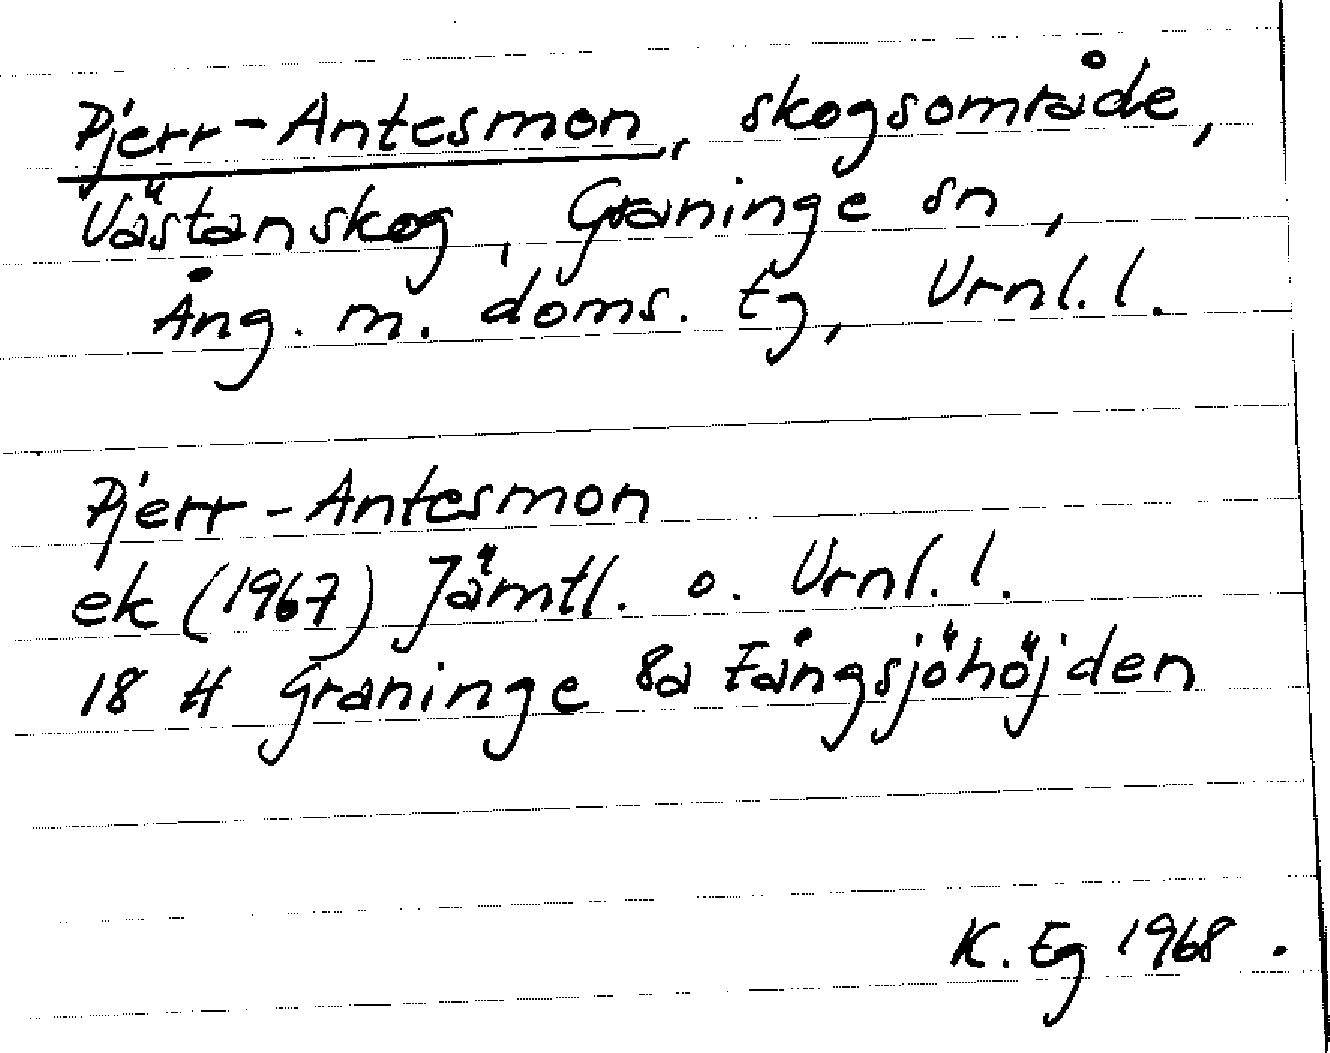 Pjerr-Antesmon, skogsområde,
Västanskog, Graninge sn,
Ång. m. doms. Eg, Vrnl. l.
Pjerr-Antesmon
ek (1967) Jämtl. o. Vrnl. l.
18 H Graninge 8a Fångsjöhöjden
K. Eg 1968.